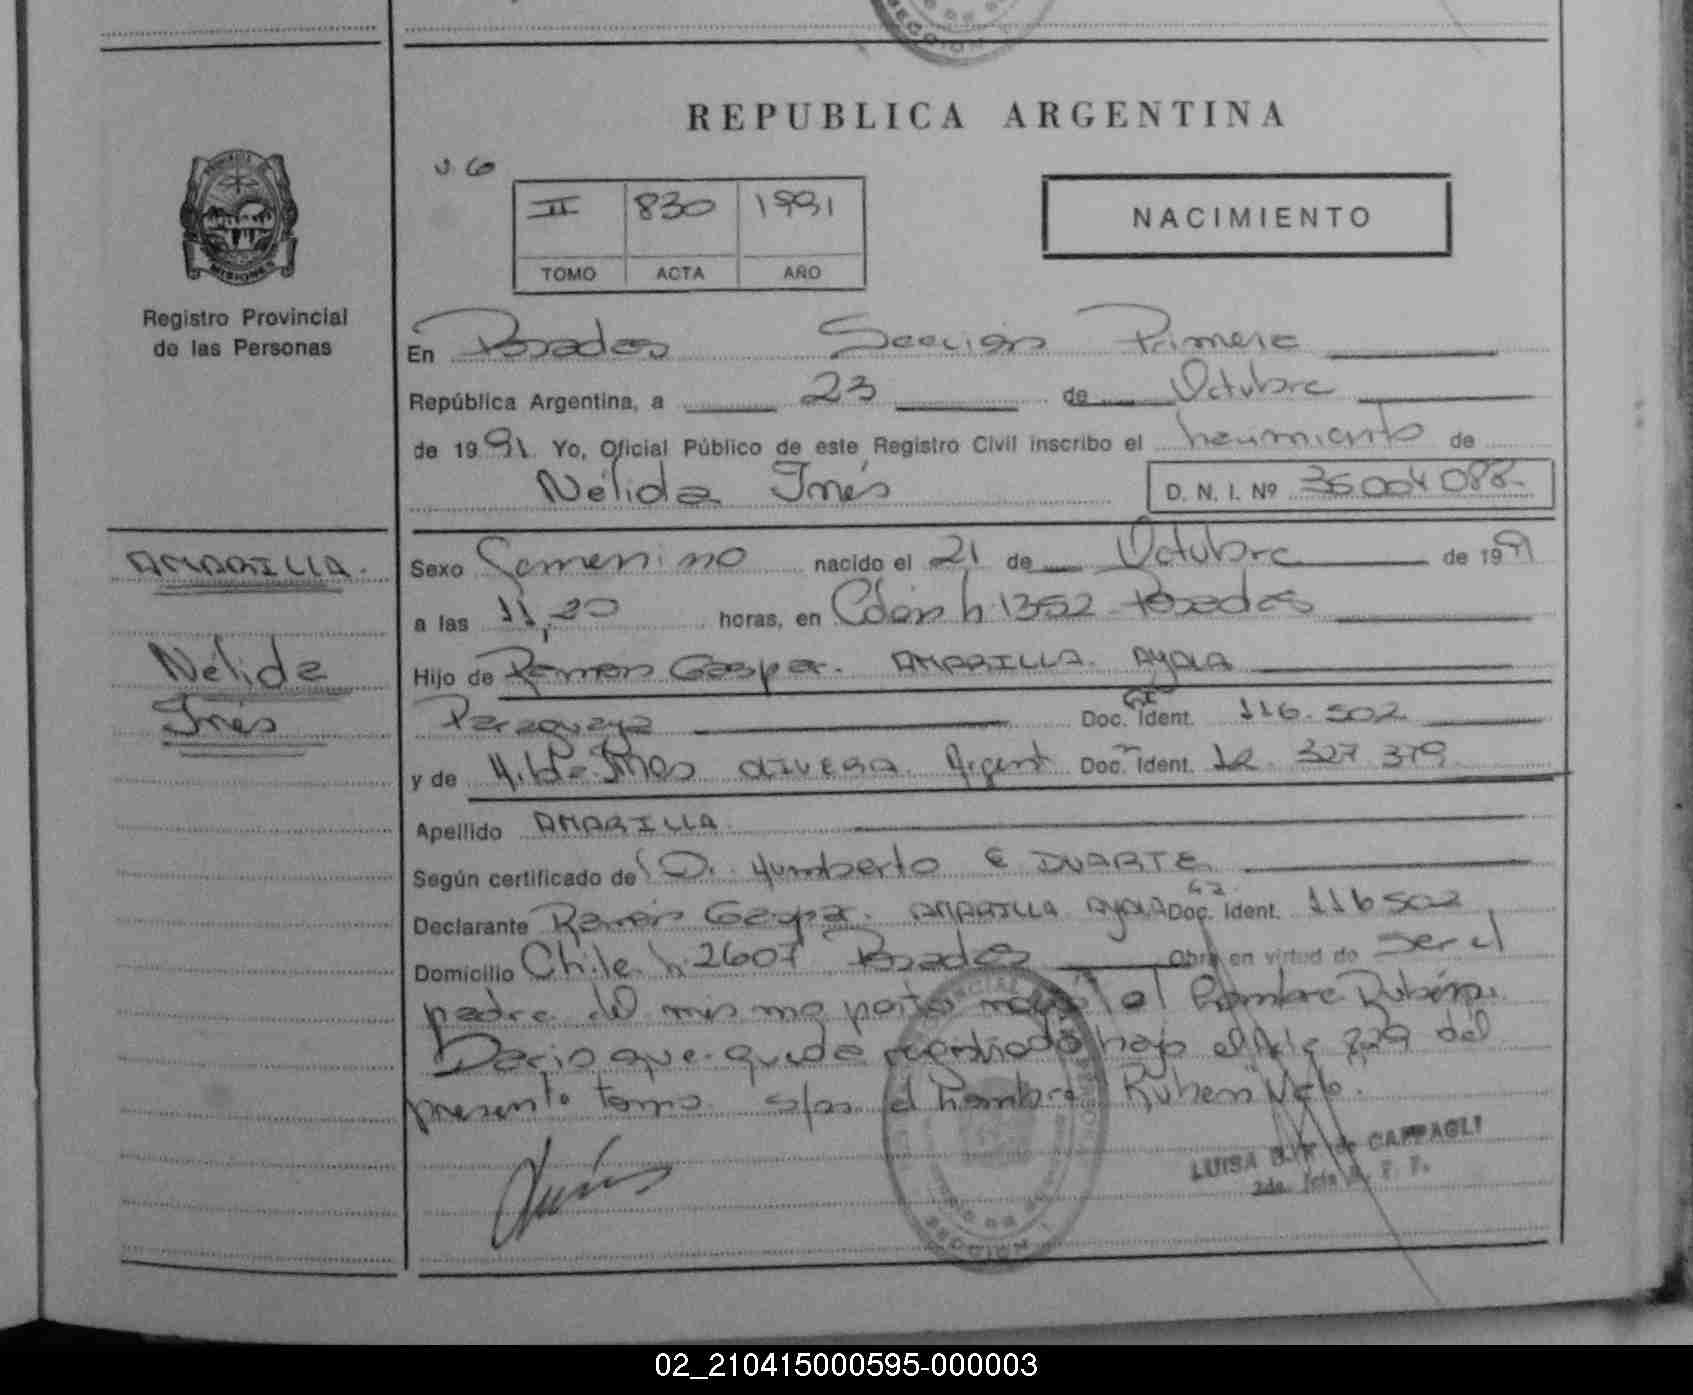 REPUBLICA ARGENTINA
II 830 1991
TOMO ACTA AÑO
NACIMIENTO
MISIONES
Registro Provincial
de las Personas
En Posadas Sección Primera
República Argentina, a 23 de Octubre
de 1991 Yo, Oficial Público de este Registro Civil inscribo el nacimiento de
Nélida Inés D. N. I. Nº 36004088
AMARILLA.
Nélida
Inés
Sexo Femenino nacido el 21 de Octubre de 1991
a las 11,20 horas, en Colón n. 1352 Posadas
Hijo de Ramon Gaspar. AMARILLA. AYALA
Paraguaya Doc. Ident. 116.502
y de Hilda Ines OLIVERA. Argent Doc. Ident. 12. 327 379
Apellido AMARILLA
Según certificado de Dr. Humberto E DUARTE
Declarante Ramón Gaspar. AMARILLA AYALA Doc. Ident. 116502
Domicilio Chile n. 2607 Posadas Obra en virtud de ser el
padre del mismo el hombre
que queda bajo el 829 del
presente tomo. s/as el hombre Ruben
LUISA de CAPPAGLI
SECCION
02_210415000595-000003